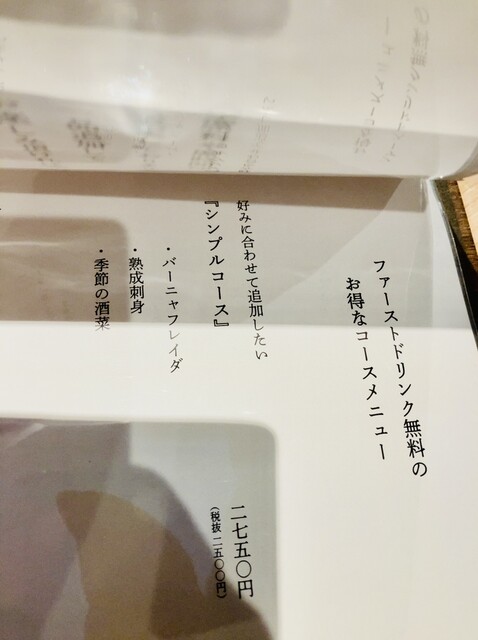 ファーストドリンク無料の
お得なコースメニュー
好みに合わせて追加したい
『シンプルコース』
・バーニャフレイダ
・熟成刺身
・季節の酒菜
二七五〇円
(税抜 二五〇〇円)